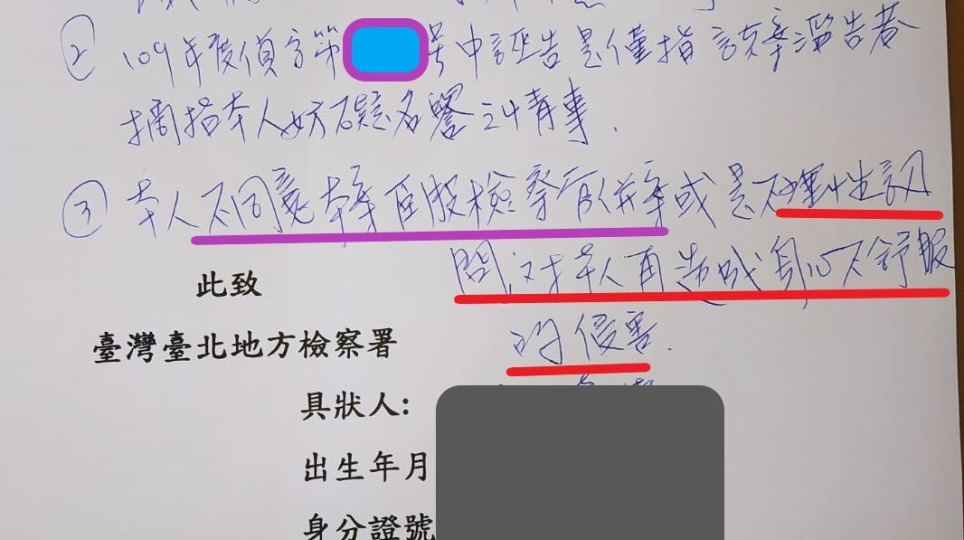 ② 109年度偵字第 号中誣告是僅指該案濫告者
摘指本人妨礙名譽之情事.
③ 本人不同意本案 股檢察官併案或是不理性訊
問,对本人再造成身心不舒服
的侵害.
此致
臺灣臺北地方檢察署
具狀人:
出生年月
身分證號